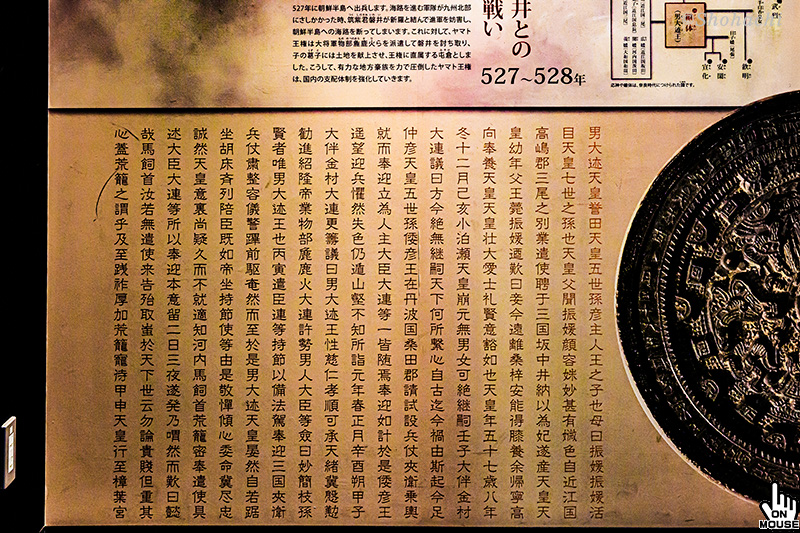 527年に朝鮮半島へ出兵します。海路を進む軍隊が九州北部
にさしかかった時、筑紫君磐井が新羅と結んで進軍を妨害し、
朝鮮半島への海路を断ってしまいます。これに対して、ヤマト
王権は大将軍物部麁鹿火らを派遣して磐井を討ち取り、
子の葛子には土地を献上させ、王権に直属する屯倉としま
した。こうして、有力な地方豪族を力で圧倒したヤマト王権
は、国内の支配体制を強化していきます。
井との
戦い
527〜528年
継体
(男大迹王)
欽明
安閑
宣化
応神や継体は、奈良時代につけられた諡です。
Shohadou
男大迹天皇誉田天皇五世孫彦主人王之子也母曰振媛振媛活
目天皇七世之孫也天皇父聞振媛顔容姝妙甚有媺色自近江国
高嶋郡三尾之別業遣使聘于三国坂中井納以為妃遂産天皇天
皇幼年父王薨振媛遒歎曰妾今遠離桑梓安能得膝養余帰寧高
向奉養天皇天皇壮大愛士礼賢意豁如也天皇年五十七歳八年
冬十二月己亥小泊瀬天皇崩元無男女可絶継嗣壬子大伴金村
大連議曰方今絶無継嗣天下何所繋心自古迄今禍由斯起今足
仲彦天皇五世孫倭彦王在丹波国桑田郡請試設兵仗夾衛乗輿
就而奉迎立為人主大臣大連等一皆随焉奉迎如計於是倭彦王
遥望迎兵懼然失色仍遁山壑不知所詣元年春正月辛酉朔甲子
大伴金村大連更籌議曰男大迹王性慈仁孝順可承天緒冀慇懃
勧進紹隆帝業物部麁鹿火大連許勢男人大臣等僉曰妙簡枝孫
賢者唯男大迹王也丙寅遣臣連等持節以備法駕奉迎三国夾衛
兵仗粛整容儀警蹕前駆奄然而至於是男大迹天皇晏然自若踞
坐胡床斉列陪臣既如帝坐持節使等由是敬憚傾心委命冀尽忠
誠然天皇意裏尚疑久而不就適知河内馬飼首荒籠密奉遣使具
述大臣大連等所以奉迎本意留二日三夜遂発乃喟然而歎曰懿
哉馬飼首汝若無遣使来告殆取蚩於天下世云勿論貴賤但重其
心蓋荒籠之謂乎及至践祚厚加荒籠寵待甲申天皇行至樟葉宮
ON
MOUSE